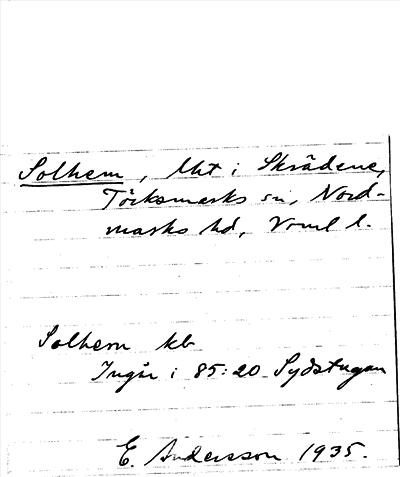 Solhem, lht i Skrädene,
Töcksmarks sn, Nord-
marks hd, Vrml l.
Solhem kb
Ingår i 85:20 Sydstugan
E. Andersson 1935.